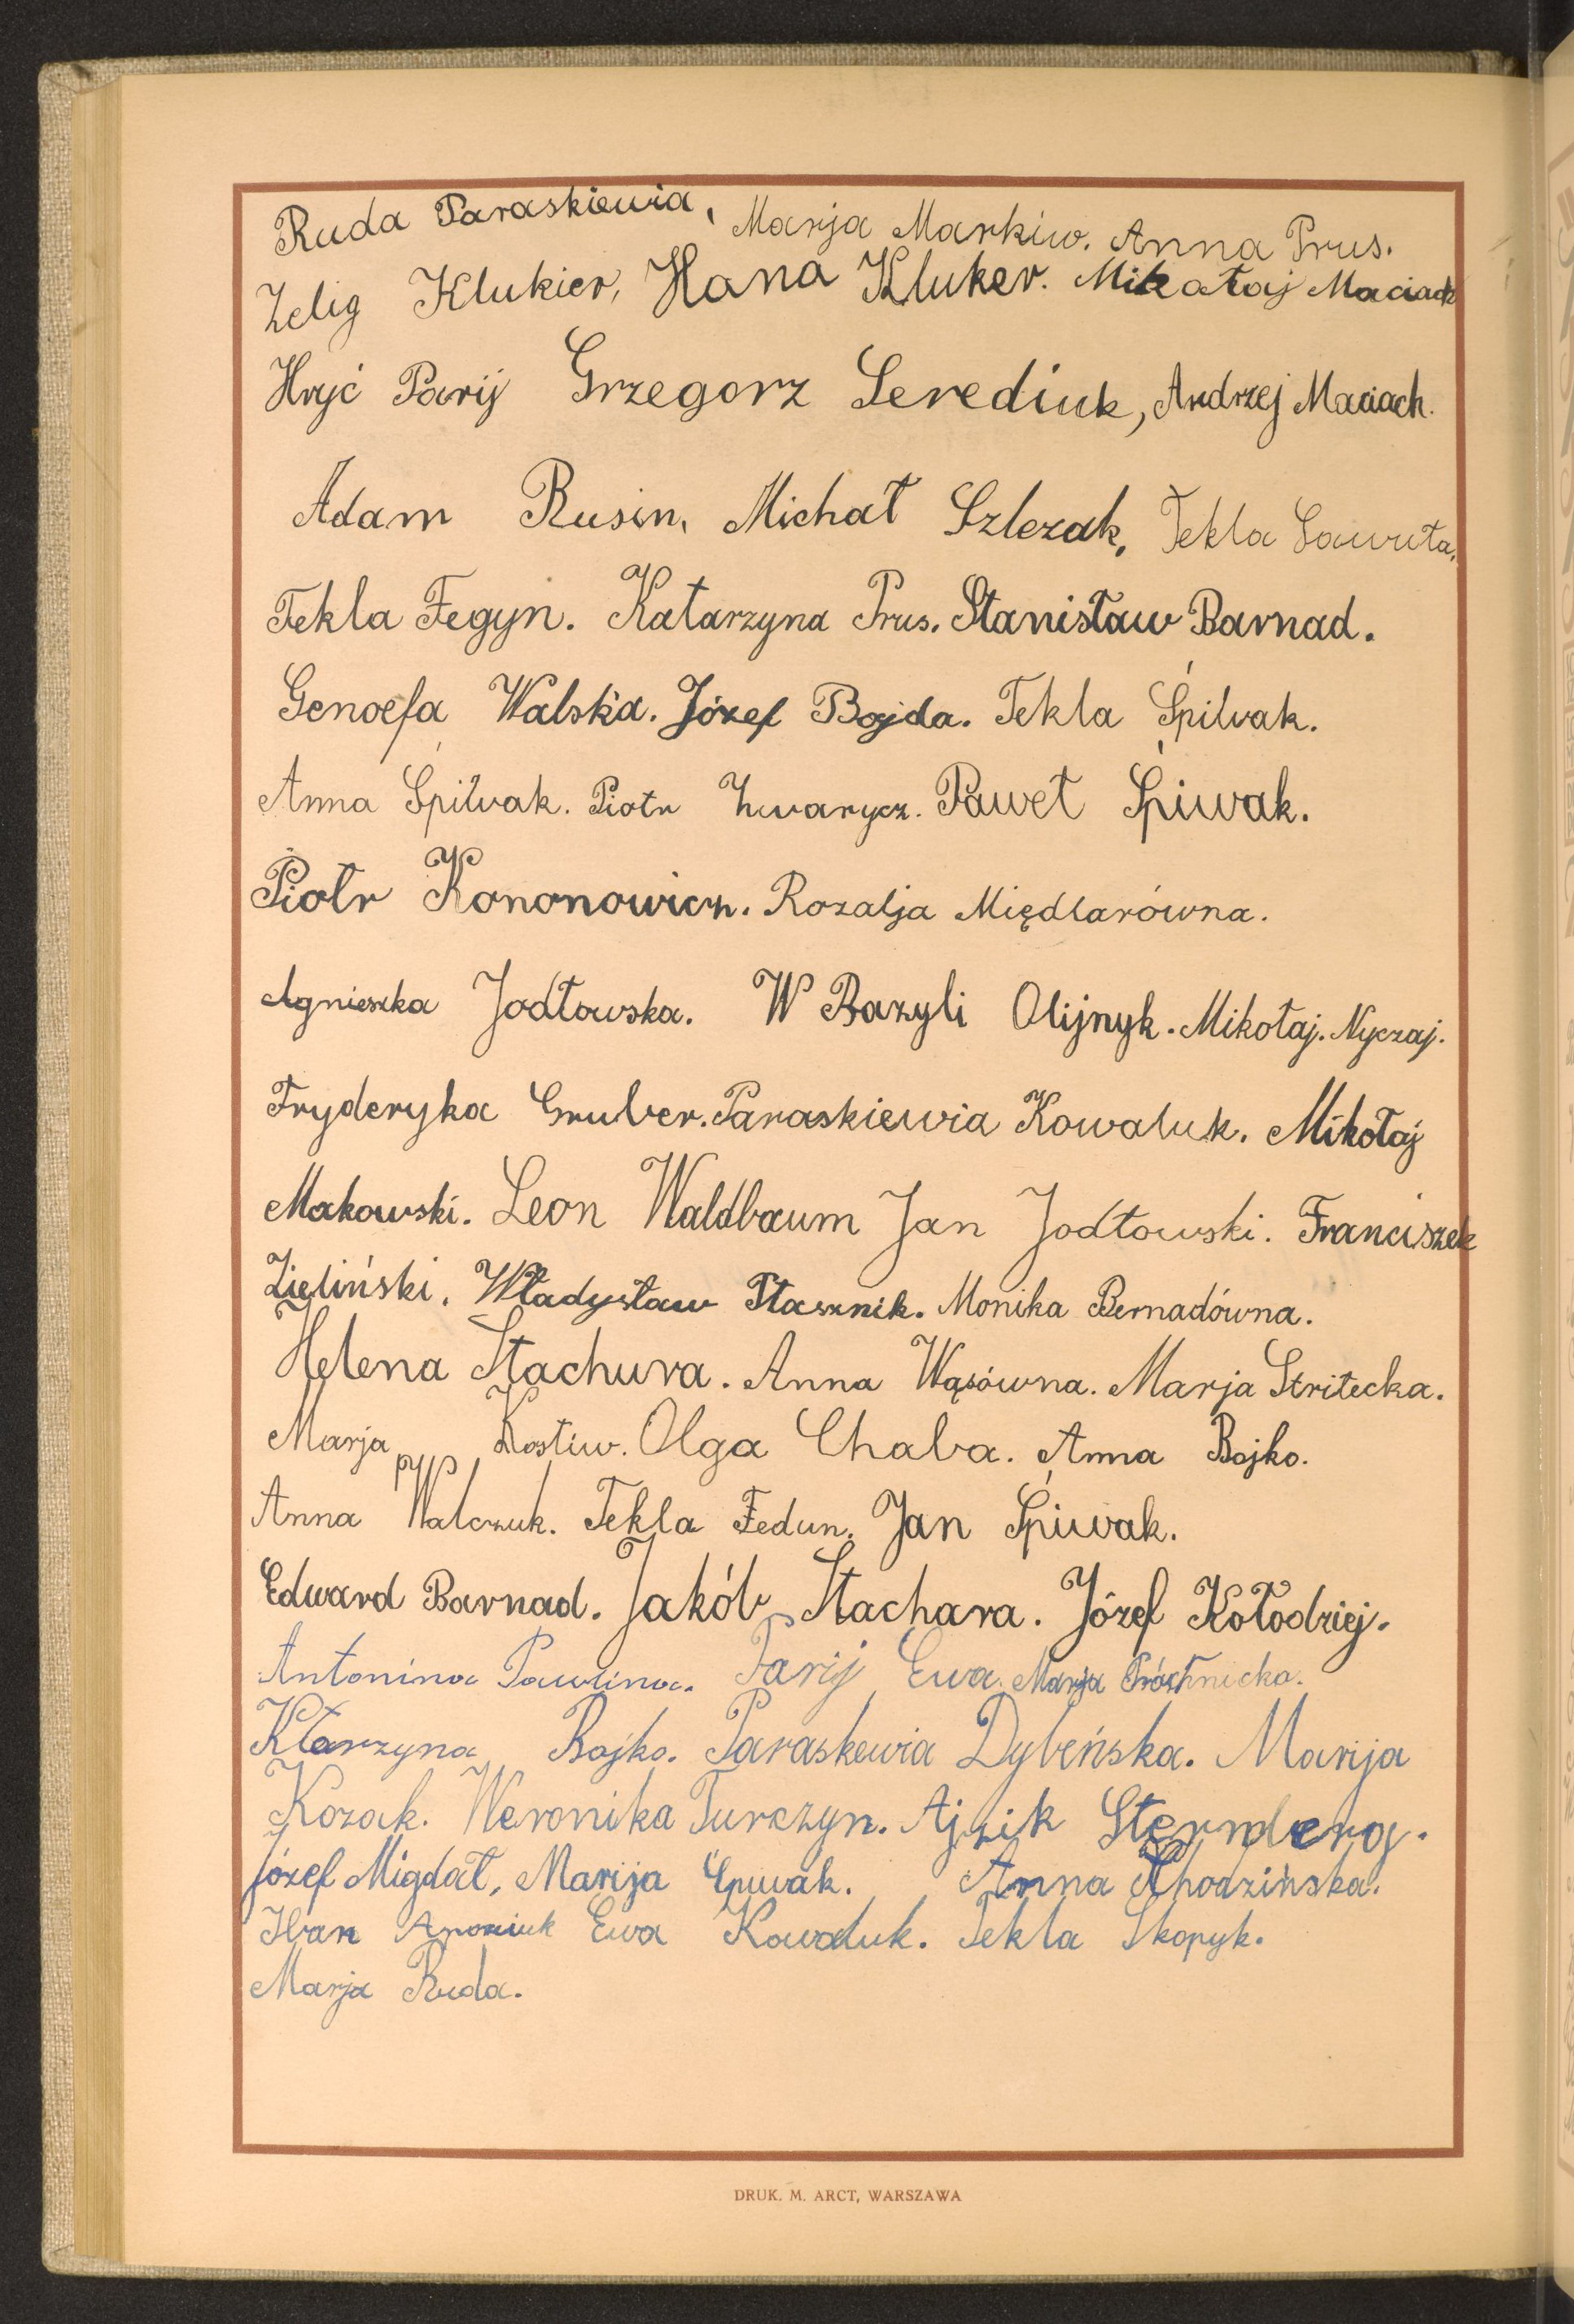 Ruda Paraskiewia, Marja Markiw. Anna Prus.
Zelig Klukier, Hana Kluker. Mikołaj Maciach
Hryć Parij Grzegorz Serediuk, Andrzej Maciach.
Adam Rusin, Michał Szlezak, Tekla Sawuta,
Tekla Fegyn. Katarzyna Prus. Stanisław Barnad.
Genoefa Walska. Józef Bojda. Tekla Śpiwak.
Anna Śpiwak. Piotr Zwarycz. Paweł Śpiwak.
Piotr Kononowicz. Rozalja Międlarówna.
Agnieszka Jodłowska. W Bazyli Olijnyk. Mikołaj. Nyczaj.
Fryderyka Gruber. Paraskiewia Kowaluk. Mikołaj
Makowski. Leon Waldbaum Jan Jodłowski. Franciszek
Zieliński. Władysław Ptasznik. Monika Bernadówna.
Helena Stachura. Anna Wąsówna. Marja Stritecka.
Marja Kostiw. Olga Chaba. Anna Bojko.
Anna Walczuk. Tekla Fedun. Jan Śpiwak.
Edward Barnad. Jakób Stachara. Józef Kołodziej.
Antonina Pawlina. Parij Ewa. Marja Próchnicka.
Ktarzyna Bojko. Paraskewia Dybeńska. Marija
Kozak. Weronika Turczyn. Ajzik Sternberg.
Józef Migdał, Marija Śpiwak. Anna Chodzińska.
Iwan Ewa Kowaluk. Tekla Skopyk.
Marja Ruda.
DRUK. M. ARCT, WARSZAWA